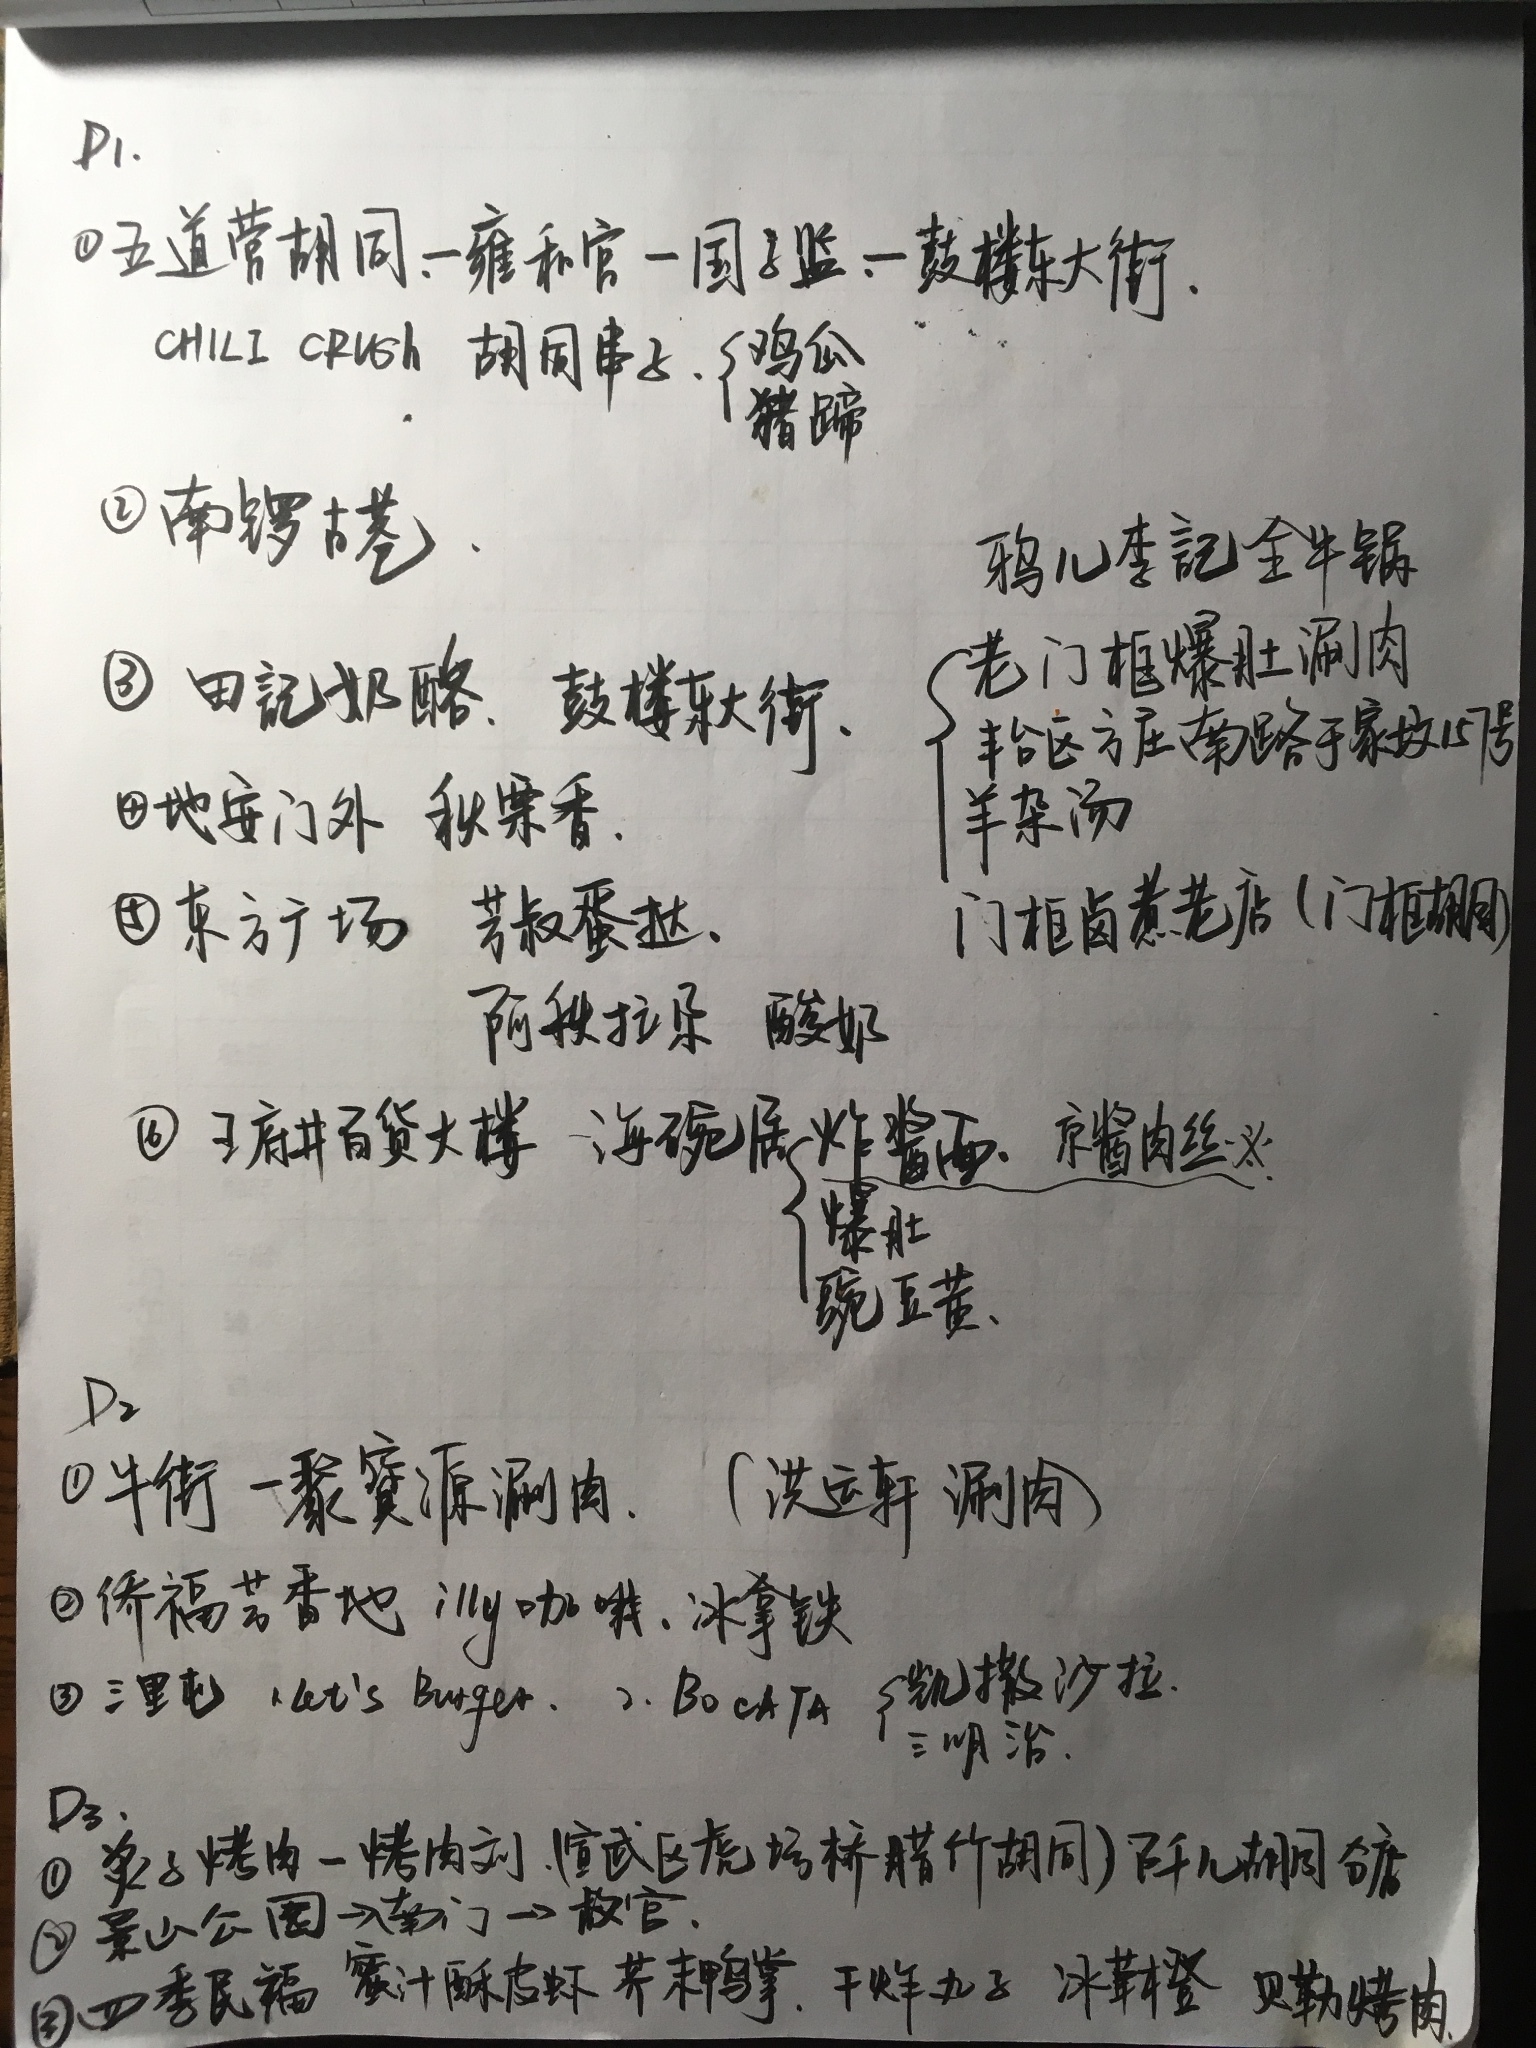 D1.
①五道营胡同、—雍和宫—国子监、—鼓楼东大街.
CHILI CRUSh 胡同串子.{鸡瓜
猪蹄
②南锣古巷.
鸦儿李記全牛锅
③ 田記奶酪、鼓楼东大街.
老门框爆肚涮肉
丰台区方庄南路于家坟15号
④地安门外 秋栗香.
羊杂汤
⑤东方广场 芳叔蛋挞.
门框卤煮老店(门框胡同)
阿秩拉朵 酸奶
⑥ 王府井百货大楼 海碗居{炸酱面、京酱肉丝.※.
爆肚
豌豆黄、
D2
①牛街—聚寳源涮肉. (洪运轩 涮肉)
②侨福芳香地 illy咖啡、冰拿铁
③三里屯 1.Let's Burger. 2. BOCATA {凯撒沙拉.
三明治.
D3.
① 炙子烤肉—烤肉刘.(宣武区虎坊桥腊竹胡同)百千儿胡同分店
② 景山公园→南门→故宫.
③四季民福 蜜汁酥皮虾 芥末鸭掌. 干炸丸子 冰草橙 贝勒烤肉.